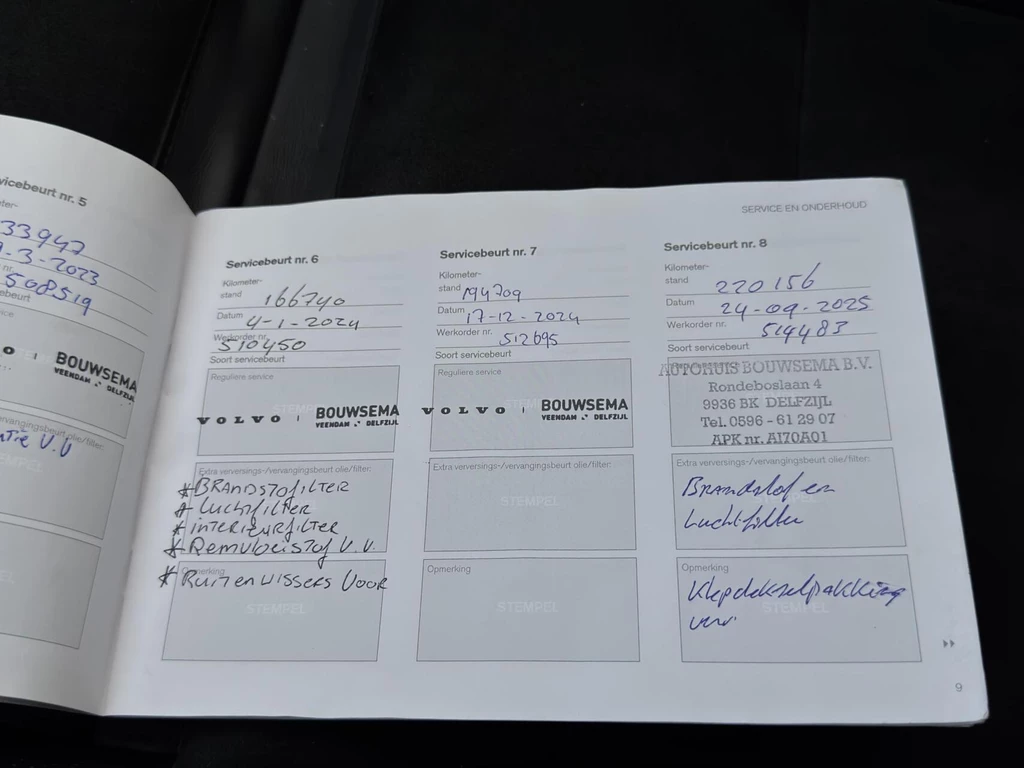 SERVICE EN ONDERHOUD
vicebeurt nr. 5
ter-
33947
-3-2023
nr.
508519
ebeurt
vice
O
BOUWSEMA
VEENDAM DELFZIJL
ervangingsbeurt olie/filter:
V.V
Servicebeurt nr. 6
Kilometer-
stand 166740
Datum 4-1-2024
Werkorder nr.
510450
Soort servicebeurt
Reguliere service
STEMPEL
VOLVO BOUWSEMA
VEENDAM DELFZIJL
Extra verversings-/vervangingsbeurt olie/filter:
* BRANDSTOFILTER
* LUCHTFILTER
* INTERIEURFILTER
* Remvloeistof V.V.
Opmerking
* RUITENWISSERS VOOR
STEMPEL
Servicebeurt nr. 7
Kilometer-
stand 194709
Datum 17-12-2024
Werkorder nr. 512695
Soort servicebeurt
Reguliere service
STEMPEL
VOLVO BOUWSEMA
VEENDAM DELFZIJL
Extra verversings-/vervangingsbeurt olie/filter:
STEMPEL
Opmerking
STEMPEL
Servicebeurt nr. 8
Kilometer-
stand 220156
Datum 24-09-2025
Werkorder nr. 514483
Soort servicebeurt
AUTOHUIS BOUWSEMA B.V.
Rondeboslaan 4
9936 BK DELFZIJL
Tel. 0596 - 61 29 07
APK nr. AI70A01
Extra verversings-/vervangingsbeurt olie/filter:
Brandstof en
Luchtfilter
STEMPEL
Opmerking
Klepdekselpakking
STEMPEL
9